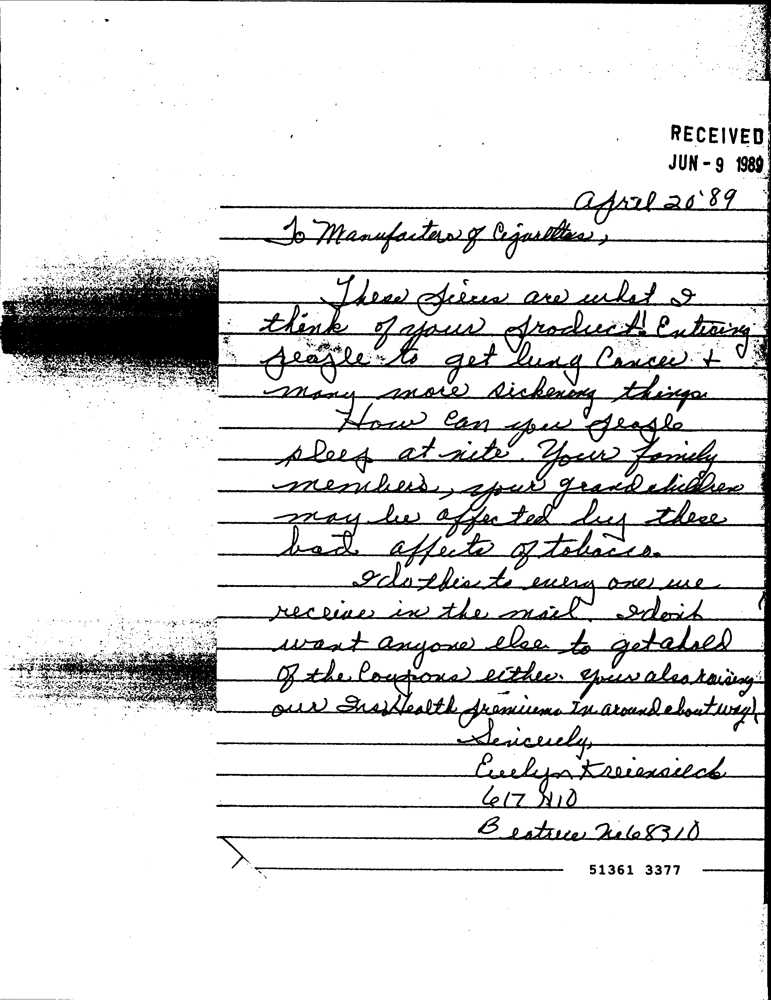 RECEIVED
JUN - 9 1989
April 20 '89
To Manufacters of Cigarettes,
These pieces are what I
think of your product! Enticing
people to get lung Cancer +
many more sickening things
How can you people
sleep at nite. Your family
members, your grandchildren
may be affected by these
bad affects of tobacco.
I do this to every one we
receive in the mail. I don't
want anyone else to get ahold
of the Coupons either. Your also raising
our Ins Health premiums In around about way!
Sincerely,
Evelyn
617 N10
Beatrice Ne 68310
51361 3377